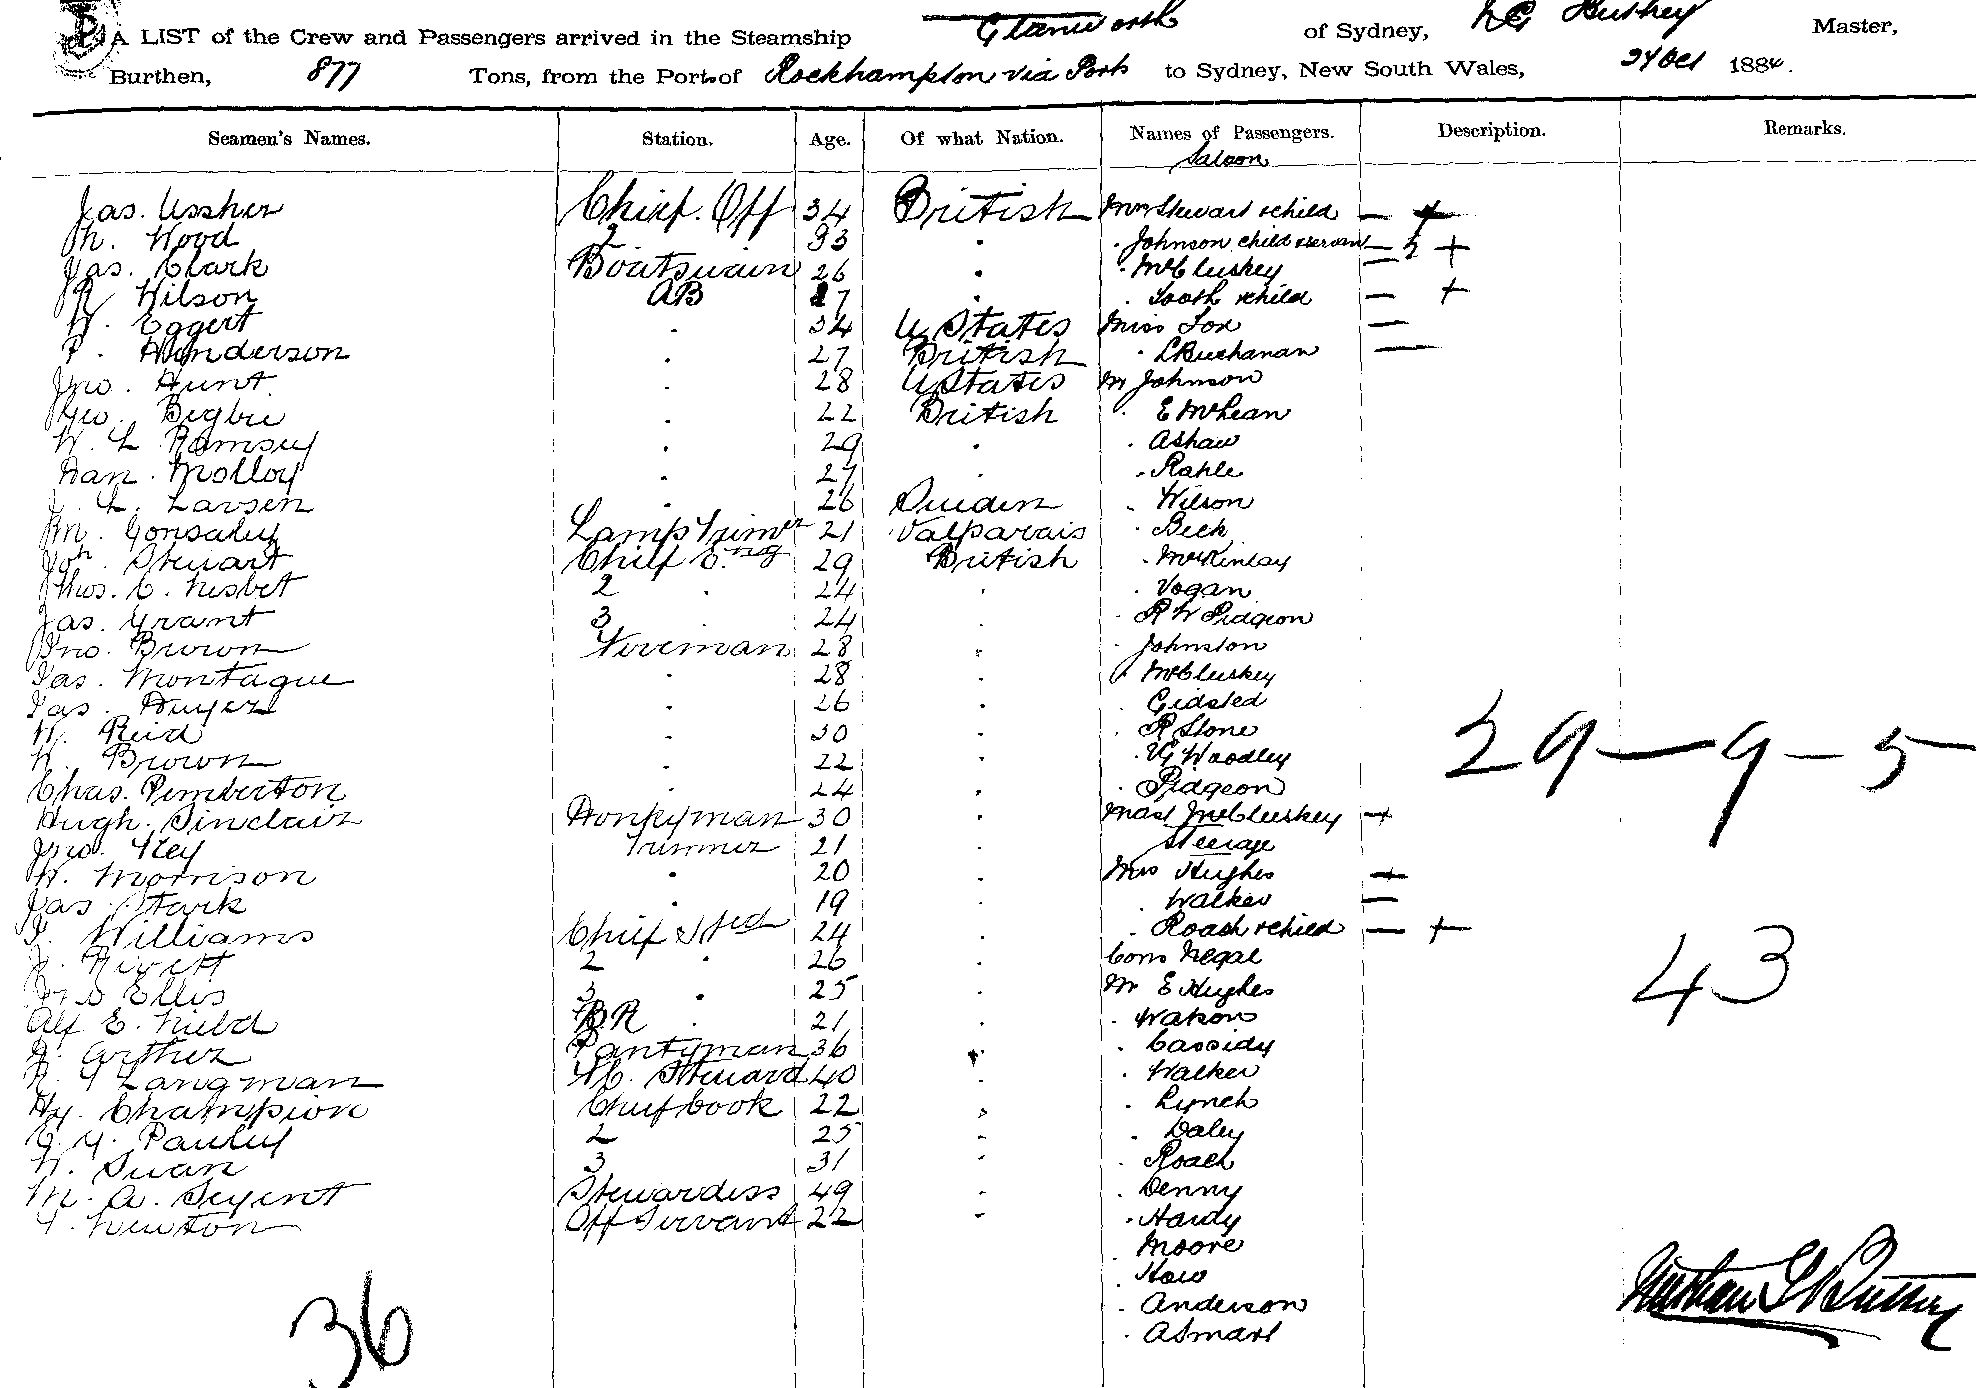 A LIST of the Crew and Passengers arrived in the Steamship Glanworth of Sydney, NG Buthey Master,
Burthen, 877 Tons, from the Port of Rockhampton via Ports to Sydney, New South Wales, 24 Oct 1884.
Seamen's Names. Station. Age. Of what Nation. Names of Passengers. Description. Remarks.
Saloon
Jas. Ussher Chief. Off 34 British Mrs Stewart & child — +
M. Wood 2 33 . . Johnson child & servant — 2 +
Jas. Clark Boatswain 26 . . McCluskey —
R Wilson AB 27 . . Tooth & child — +
W. Eggert . 34 U States Miss Fox —
P. Henderson . 27 British . L Buchanan —
Jno. Hunt . 28 U States M Johnson
Geo. Begbie . 22 British . E McLean
W. L. Ramsey . 29 . . A Shaw
Dan. Molloy . 27 . . Rahle
J. L. Larsen . 26 Sweden . Wilson
M. Gonsaley Lamp Trimr 21 Valparais . Beck
Jon. Stewart Chief Eng 29 British . McKinlay
Thos. C. Nisbet 2 . 24 . . Vogan
Jas. Grant 3 24 . . R W Pidgeon
Jno. Brown Fireman 28 . . Johnston
Jas. Montague . 28 . McCluskey
Jas. Dwyer . 26 . . Gidsted
W. Reid . 30 . . R Stone
W. Brown . 22 . . VG Woodley
Chas. Pemberton 24 . . Pidgeon
Hugh. Sinclair Donkyman 30 . Mast McCluskey +
Jno. Key Trimmer 21 . Steerage
W. Morrison . 20 . Mrs Hughes —
Jas. Stark . 19 . . Walker —
J. Williams Chief Sted 24 . . Roach & child — +
J. Rivett 2 . 26 . Cons Negal
Jno Ellis 3 . 25 . Mr E Hughes
Alf E. Nield BR . 21 . . Watson
J. Arther Pantyman 36 . . Cassidy
R. G Langman FC. Steward 40 . . Walker
Hy. Champion Chief Cook 22 . . Lynch
G. G. Pauley 2 25 . . Daley
W. Swan 3 31 . . Roach
M. A. Segent Stewardess 49 . . Denny
T. Newton Off Servant 22 . . Hardy
. Moore
. Haw
. Anderson
. A Smart
29 — 9 — 5
43
36